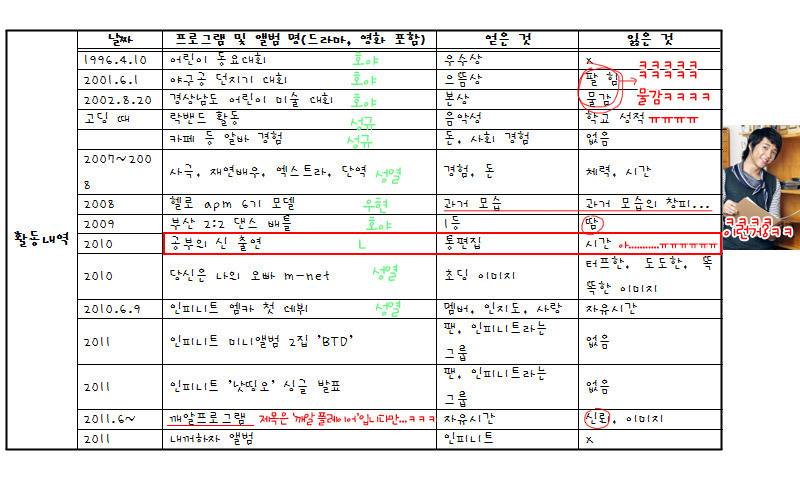 날짜 프로그램 및 앨범 명(드라마, 영화 포함) 얻은 것 잃은 것
1996.4.10 어린이 동요대회 호야 우수상 x ㅋㅋㅋㅋㅋ
ㅋㅋㅋㅋㅋ
2001.6.1 야구공 던지기 대회 호야 으뜸상 팔 힘
2002.8.20 경상남도 어린이 미술 대회 호야 본상 물감 물감ㅋㅋㅋㅋ
고딩 때 락밴드 활동 성규 음악성 학교 성적 ㅠㅠㅠㅠ
카페 등 알바 경험 성규 돈, 사회 경험 없음
2007~200
8 사극, 재연배우, 엑스트라, 단역 성열 경험, 돈 체력, 시간
2008 헬로 apm 6기 모델 우현 과거 모습 과거 모습의 창피...
2009 부산 2:2 댄스 배틀 호야 1등 땀
ㅋㅋㅋㅋ
활동내역
2010 공부의 신 출연 L 통편집 시간 아...........ㅠㅠㅠㅠㅠㅠ
2010 당신은 나의 오빠 m-net 성열 초딩 이미지 터프한, 도도한, 똑
똑한 이미지
2010.6.9 인피니트 엠카 첫 데뷔 성열 멤버, 인지도, 사랑 자유시간
2011 인피니트 미니앨범 2집 'BTD' 팬, 인피니트라는
그룹 없음
2011 인피니트 '낫띵오' 싱글 발표 팬, 인피니트라는
그룹 없음
2011.6~ 깨알프로그램 제목은 '깨알 플레이어'입니다만...ㅋㅋㅋ 자유시간 신뢰, 이미지
2011 내꺼하자 앨범 인피니트 x